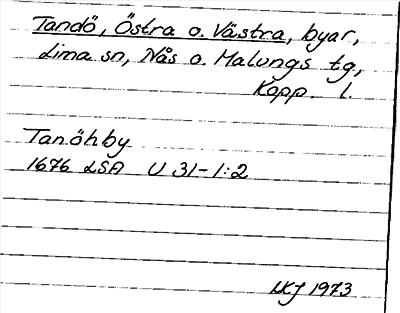 Tandö, Östra o. Västra, byar,
Lima sn, Nås o. Malungs tg,
Kopp. l.
Tanöhby
1676 LSA U 31-1:2
IKJ 1973